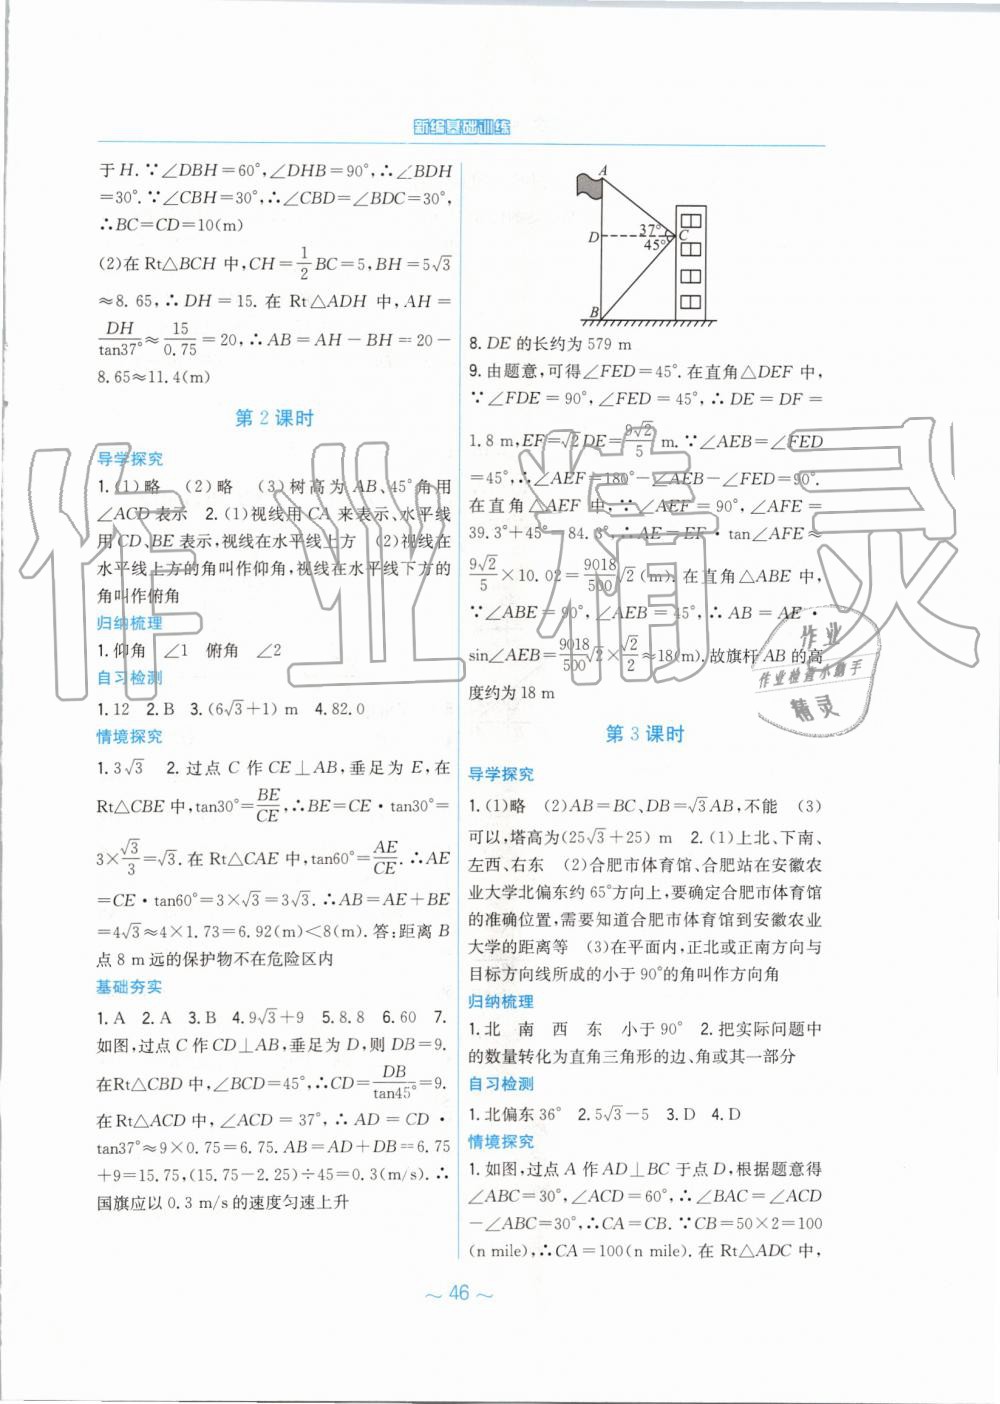 新编基础训练
于H.∵∠DBH=60°,∠DHB=90°,∴∠BDH
=30°.∵∠CBH=30°,∴∠CBD=∠BDC=30°,
∴BC=CD=10(m)
(2)在Rt△BCH中,CH=1/2BC=5,BH=5√3
≈8.65,∴DH=15.在Rt△ADH中,AH=
DH/tan37°≈15/0.75=20,∴AB=AH-BH=20-
8.65≈11.4(m)
第2课时
导学探究
1.(1)略 (2)略 (3)树高为AB、45°角用
∠ACD表示 2.(1)视线用CA来表示、水平线
用CD、BE表示,视线在水平线上方 (2)视线在
水平线上方的角叫作仰角,视线在水平线下方的
角叫作俯角
归纳梳理
1.仰角 ∠1 俯角 ∠2
自习检测
1.12 2.B 3.(6√3+1) m 4.82.0
情境探究
1.3√3 2.过点C作CE⊥AB,垂足为E,在
Rt△CBE中,tan30°=BE/CE,∴BE=CE·tan30°=
3×√3/3=√3.在Rt△CAE中,tan60°=AE/CE.∴AE
=CE·tan60°=3×√3=3√3.∴AB=AE+BE
=4√3≈4×1.73=6.92(m)<8(m).答:距离B
点8 m远的保护物不在危险区内
基础夯实
1.A 2.A 3.B 4.9√3+9 5.8.8 6.60 7.
如图,过点C作CD⊥AB,垂足为D,则DB=9.
在Rt△CBD中,∠BCD=45°,∴CD=DB/tan45°=9.
在Rt△ACD中,∠ACD=37°,∴AD=CD·
tan37°≈9×0.75=6.75.AB=AD+DB=6.75
+9=15.75,(15.75-2.25)÷45=0.3(m/s).∴
国旗应以0.3 m/s的速度匀速上升
A
D
37°
45°
C
B
8.DE的长约为579 m
9.由题意,可得∠FED=45°.在直角△DEF中,
∵∠FDE=90°,∠FED=45°,∴DE=DF=
1.8 m,EF=√2DE=9√2/5 m.∵∠AEB=∠FED
=45°,∴∠AEF=180°-∠AEB-∠FED=90°.
在直角△AEF中,∵∠AEF=90°,∠AFE=
39.3°+45°=84.3°,∴AE=EF·tan∠AFE≈
9√2/5×10.02=9018/500√2(m).在直角△ABE中,
∵∠ABE=90°,∠AEB=45°,∴AB=AE·
sin∠AEB=9018/500√2×√2/2≈18(m).故旗杆AB的高
度约为18 m
第3课时
导学探究
1.(1)略 (2)AB=BC、DB=√3AB,不能 (3)
可以,塔高为(25√3+25) m 2.(1)上北、下南、
左西、右东 (2)合肥市体育馆、合肥站在安徽农
业大学北偏东约65°方向上,要确定合肥市体育馆
的准确位置,需要知道合肥市体育馆到安徽农业
大学的距离等 (3)在平面内,正北或正南方向与
目标方向线所成的小于90°的角叫作方向角
归纳梳理
1.北 南 西 东 小于90° 2.把实际问题中
的数量转化为直角三角形的边、角或其一部分
自习检测
1.北偏东36° 2.5√3-5 3.D 4.D
情境探究
1.如图,过点A作AD⊥BC于点D,根据题意得
∠ABC=30°,∠ACD=60°,∴∠BAC=∠ACD
-∠ABC=30°,∴CA=CB.∵CB=50×2=100
(n mile),∴CA=100(n mile).在Rt△ADC中,
~ 46 ~
作业精灵
作业
作业检查小助手
精灵